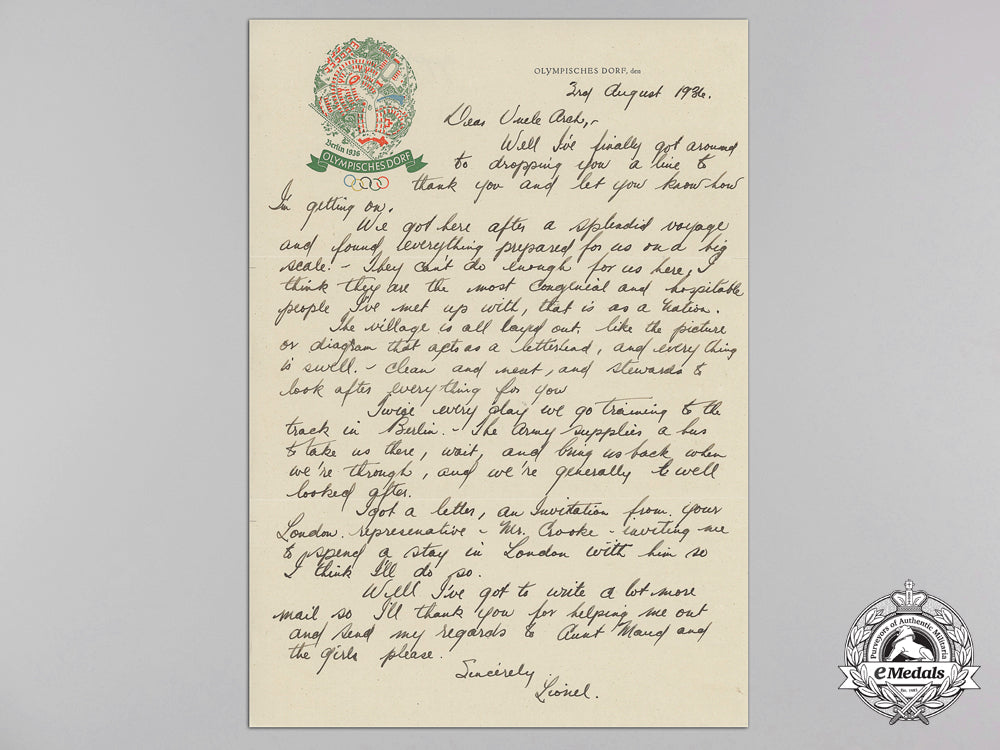 OLYMPISCHES DORF, den
3rd August 1936.
Berlin 1936
OLYMPISCHES DORF
Dear Uncle Arch,-
Well I've finally got around
to dropping you a line to
thank you and let you know how
I'm getting on.
We got here after a splendid voyage
and found everything prepared for us on a big
scale. - They can't do enough for us here, I
think they are the most congenial and hospitable
people I've met up with, that is as a nation.
The village is all layed out, like the picture
or diagram that acts as a letterhead, and everything
is swell. - clean and neat, and stewards to
look after everything for you
Twice every day we go training to the
track in Berlin. - The Army supplies a bus
to take us there, wait, and bring us back when
we're through, and we're generally to well
looked after.
I got a letter, an Invitation from your
London represenative - Mr. Crooke - inviting me
to spend a stay in London with him so
I think I'll do so.
Well I've got to write a lot more
mail so I'll thank you for helping me out
and send my regards to Aunt Maud and
the girls please.
Sincerely
Lionel.
Purveyors of Authentic Militaria
eMedals